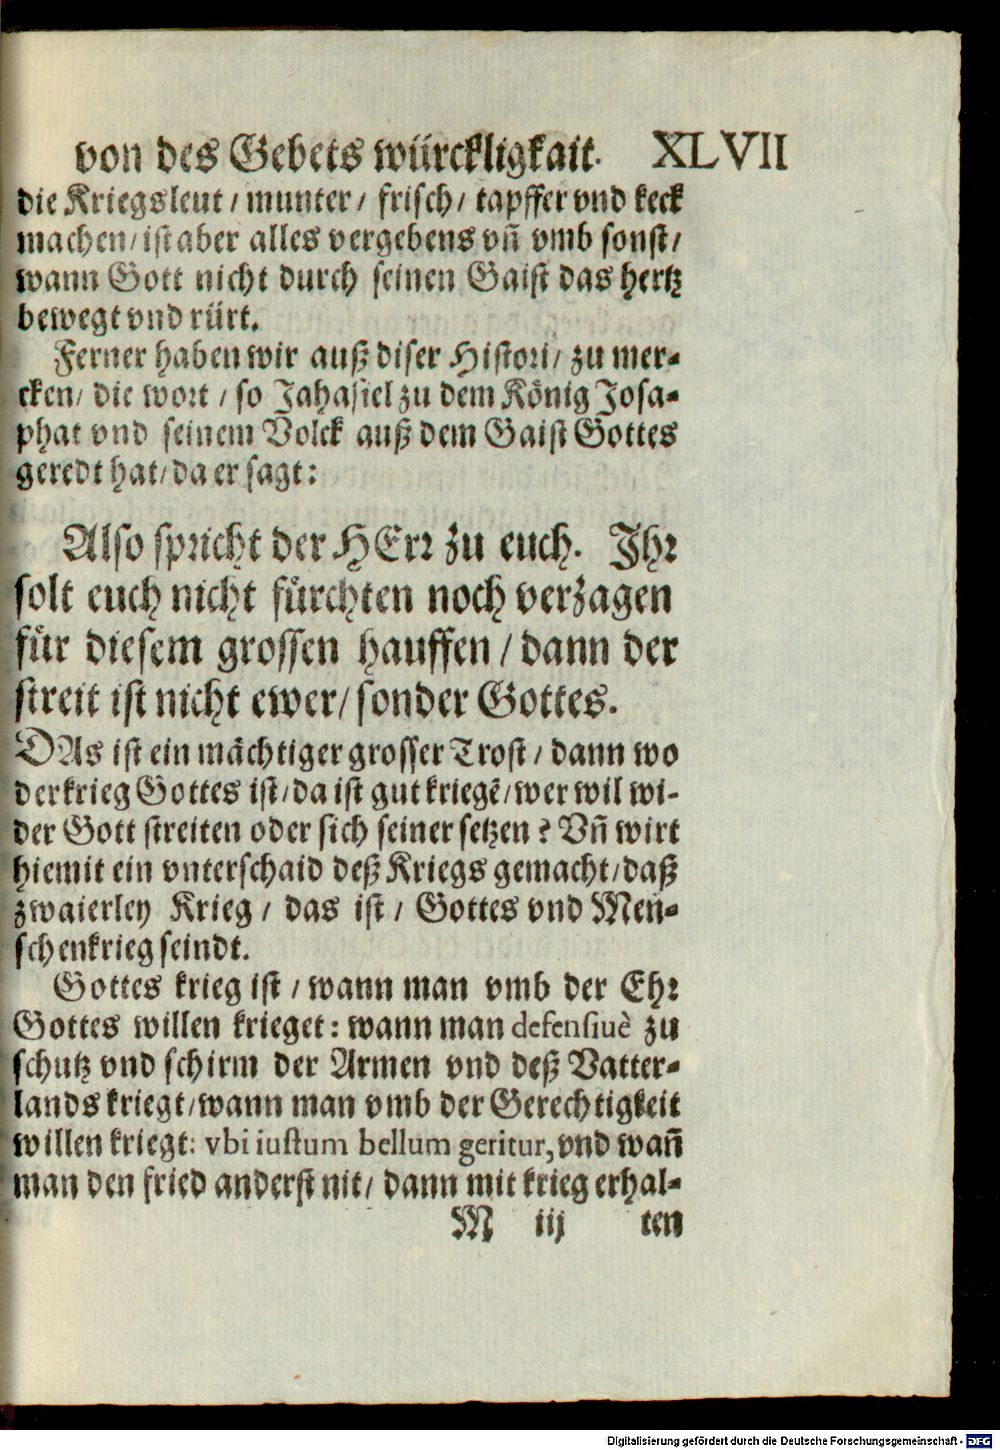 von des Gebets würckligkait. XLVII
die Kriegsleut / munter / frisch / tapffer vnd keck
machen / ist aber alles vergebens vñ vmb sonst /
wann Gott nicht durch seinen Gaist das hertz
bewegt vnd rürt.
Ferner haben wir auß diser Histori / zu mer-
cken / die wort / so Jahasiel zu dem König Josa-
phat vnd seinem Volck auß dem Gaist Gottes
geredt hat / da er sagt:
Also spricht der HErr zu euch. Ihr
solt euch nicht fürchten noch verzagen
für diesem grossen hauffen / dann der
streit ist nicht ewer / sonder Gottes.
DAs ist ein mächtiger grosser Trost / dann wo
der krieg Gottes ist / da ist gut kriegē / wer wil wi-
der Gott streiten oder sich seiner setzen? Vñ wirt
hiemit ein vnterschaid deß Kriegs gemacht / daß
zwaierley Krieg / das ist / Gottes vnd Men-
schenkrieg seindt.
Gottes krieg ist / wann man vmb der Ehr
Gottes willen krieget: wann man defensiuè zu
schutz vnd schirm der Armen vnd deß Vatter-
lands kriegt / wann man vmb der Gerechtigkeit
willen kriegt: vbi iustum bellum geritur, vnd wañ
man den fried anderst nit / dann mit krieg erhal-
M iij ten
Digitalisierung gefördert durch die Deutsche Forschungsgemeinschaft - DFG